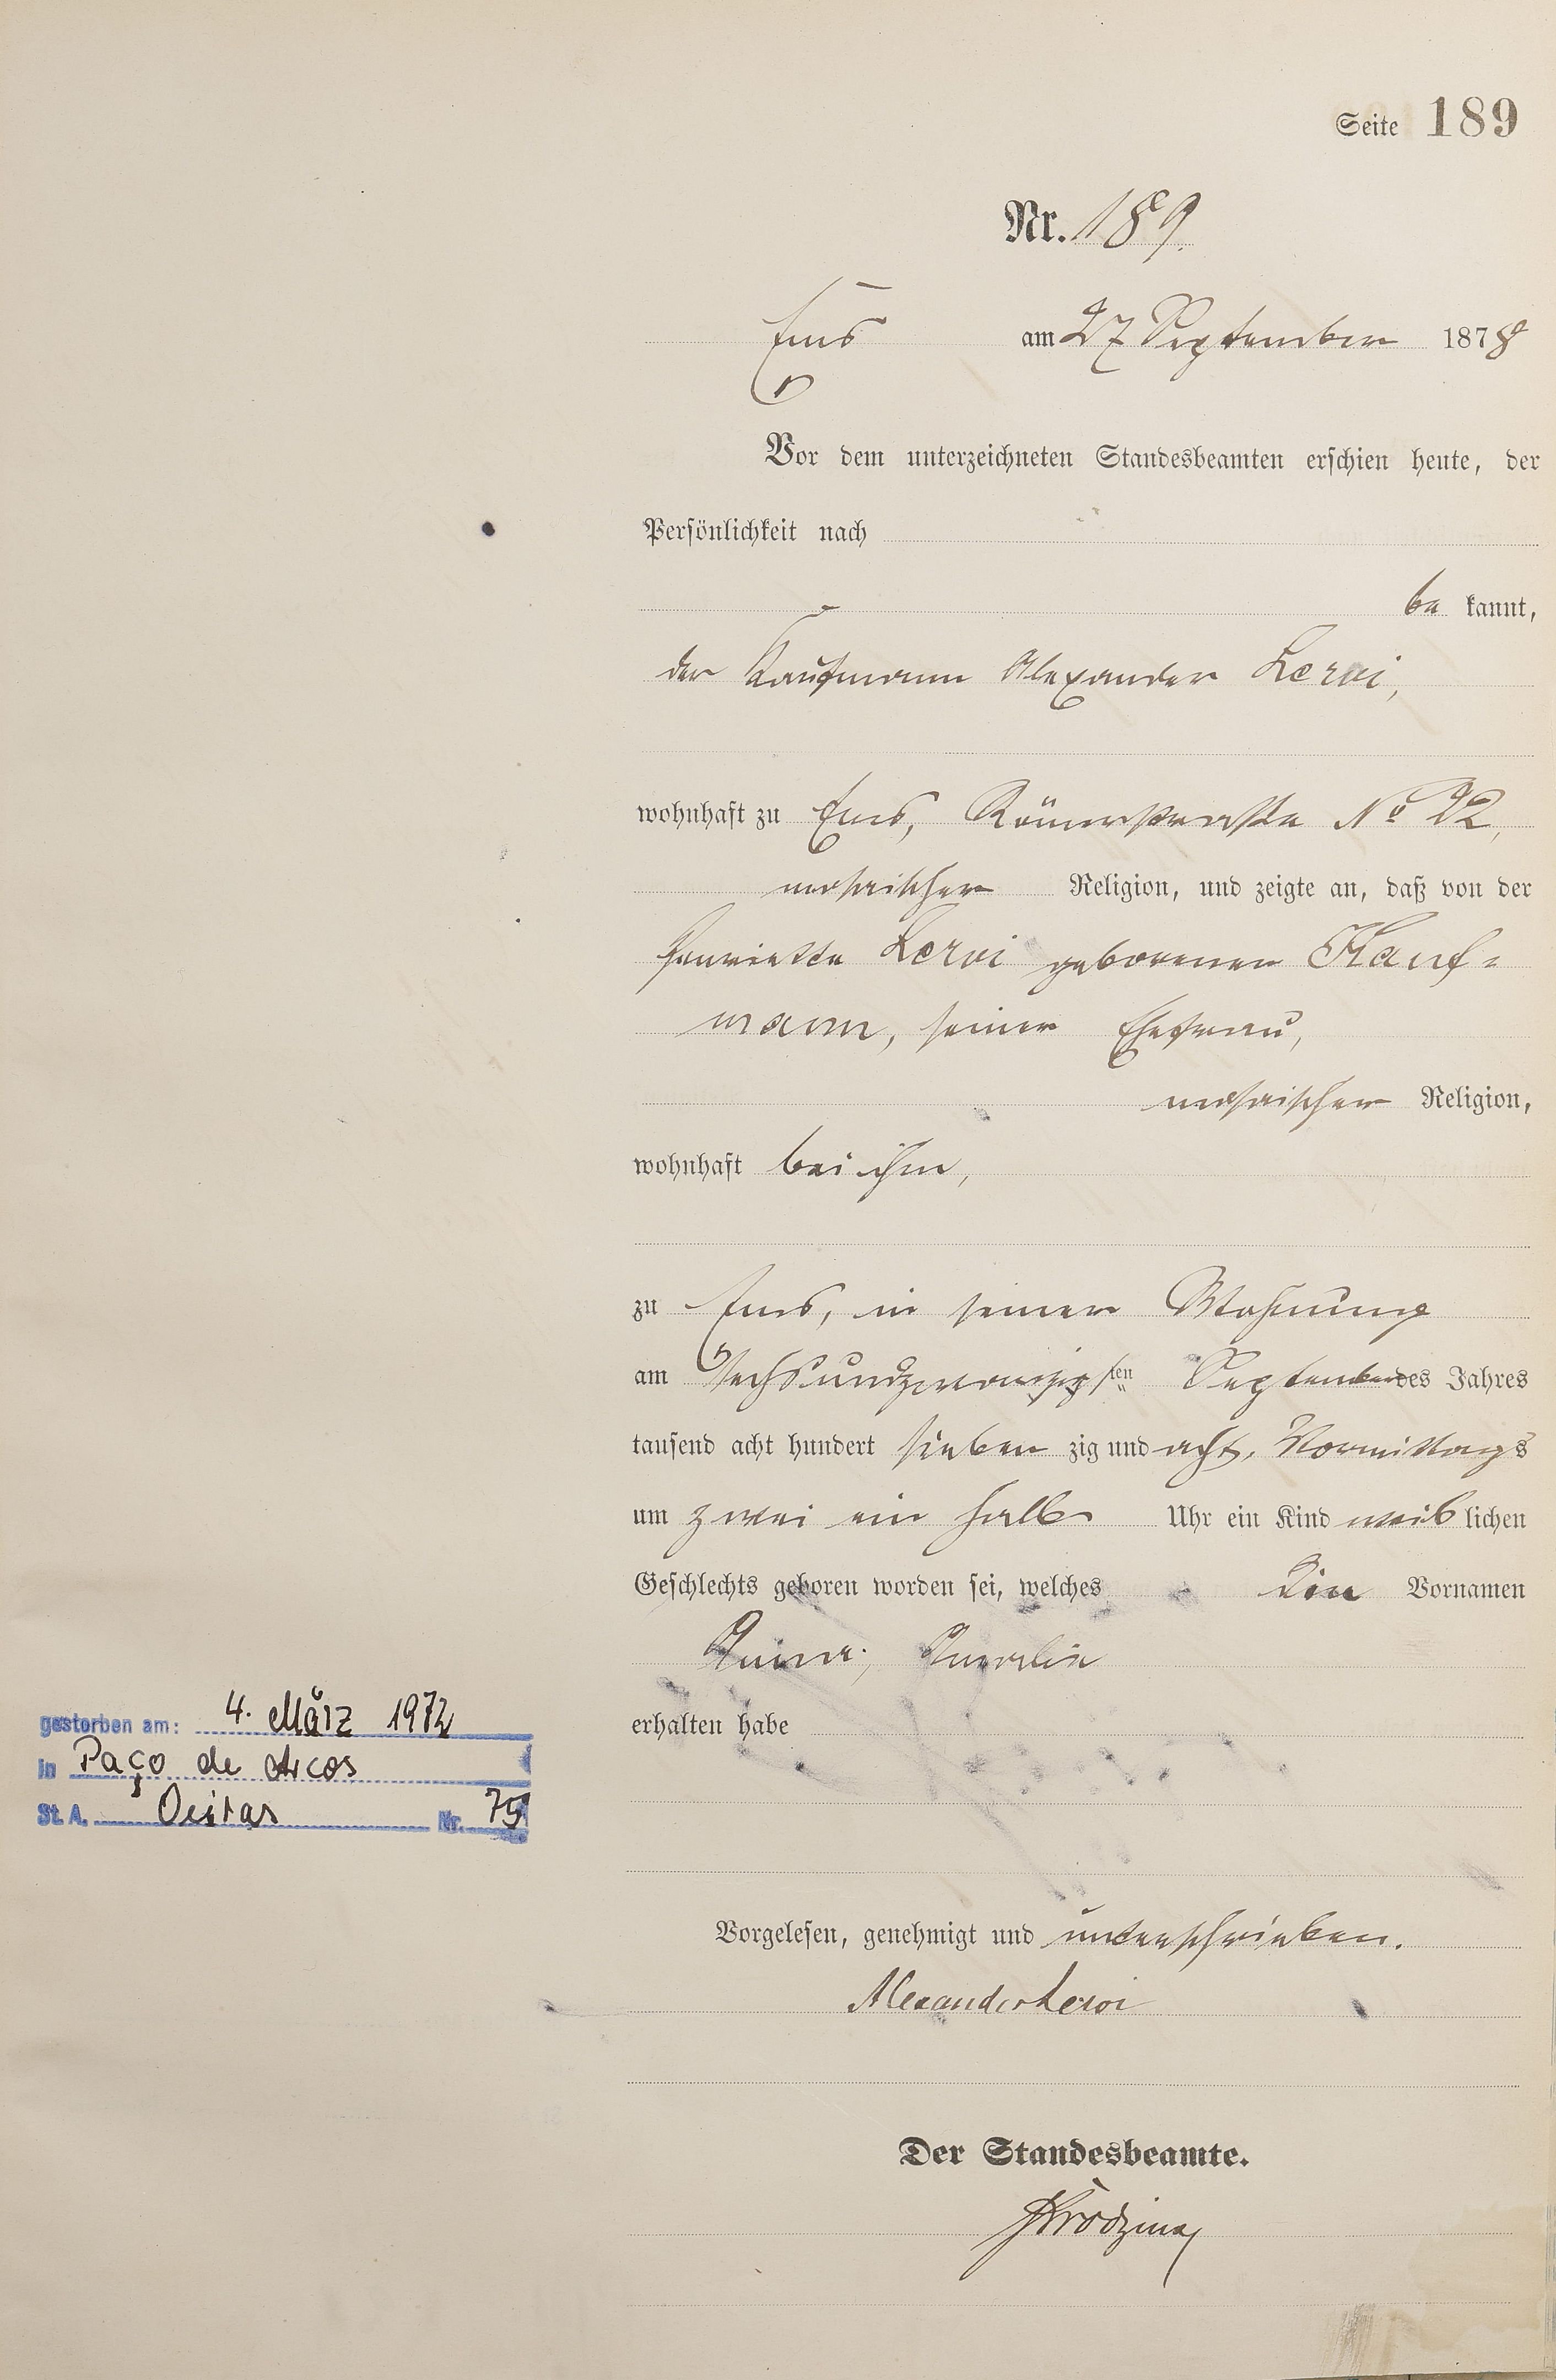 Seite 189
Nr. 189.
Ems am 27 September 1878
Vor dem unterzeichneten Standesbeamten erschien heute, der
Persönlichkeit nach
be kannt,
der Kaufmann Alexander Leroi,
wohnhaft zu Ems, Römerstraße No 22,
mosaischer Religion, und zeigte an, daß von der
Henriette Leroi geborenen Kauf=
mann, seiner Ehefrau,
mosaischer Religion,
wohnhaft bei ihm,
zu Ems, in seiner Wohnung
am sechsundzwanzigsten September des Jahres
tausend acht hundert sieben zig und acht, Vormittags
um zwei ein halb Uhr ein Kind weiblichen
Geschlechts geboren worden sei, welches die Vornamen
Amalie
erhalten habe
gestorben am: 4. März 1972
in Paço de Arcos
St. A. Oeiras Nr. 75
Vorgelesen, genehmigt und unterschrieben.
Alexander Leroi
Der Standesbeamte.